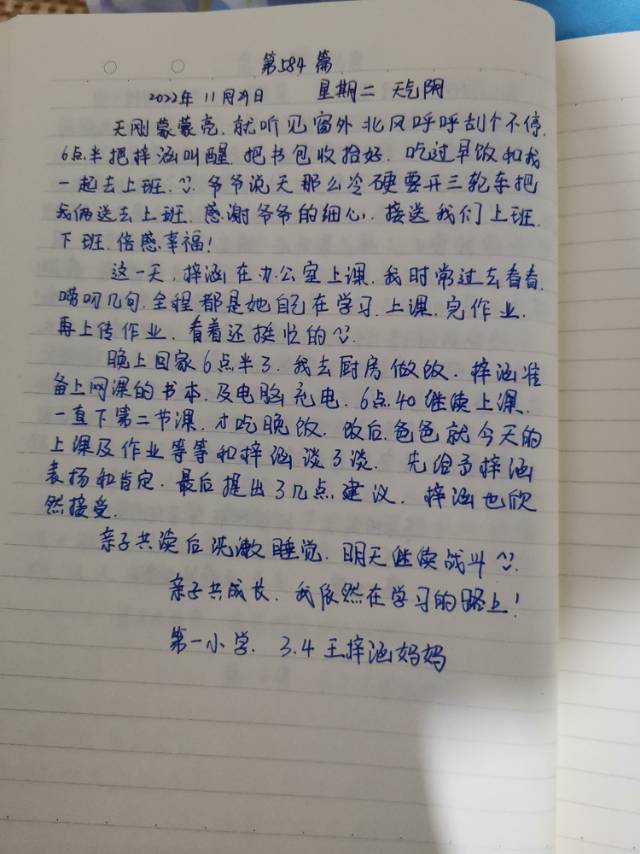 第584篇
2022年11月29日 星期二 天气阴
天刚蒙蒙亮,就听见窗外北风呼呼刮个不停,
6点半把梓涵叫醒,把书包收拾好,吃过早饭和我
一起去上班.爷爷说天那么冷硬要开三轮车把
我俩送去上班,感谢爷爷的细心,接送我们上班,
下班,倍感幸福!
这一天,梓涵在办公室上课,我时常过去看看,
唠叨几句,全程都是她自己在学习,上课,完作业,
再上传作业,看着还挺忙的
晚上回家6点半了,我去厨房做饭,梓涵准
备上网课的书本,及电脑充电,6点40继续上课,
一直下第二节课,才吃晚饭,饭后,爸爸就今天的
上课及作业等等和梓涵谈了谈,先给予梓涵
表扬和肯定,最后提出了几点建议,梓涵也欣
然接受.
亲子共读后洗漱睡觉,明天继续战斗
亲子共成长,我依然在学习的路上!
第一小学,3.4王梓涵妈妈